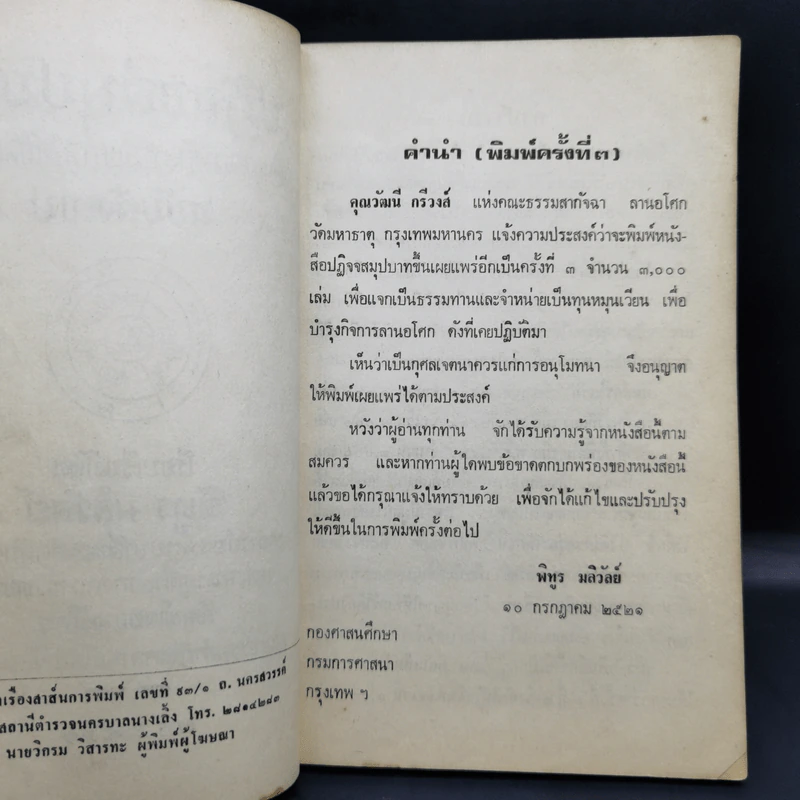 เรืองสาส์นการพิมพ์ เลขที่ ๙๓/๑ ถ. นครสวรรค์
สถานีตำรวจนครบาลนางเลิ้ง โทร. ๒๘๑๔๒๘๓
นายวิกรม วิสารทะ ผู้พิมพ์ผู้โฆษณา
คำนำ (พิมพ์ครั้งที่ ๓)
คุณวัฒนี กรีวงส์ แห่งคณะธรรมสากัจฉา ลานอโศก
วัดมหาธาตุ กรุงเทพมหานคร แจ้งความประสงค์ว่าจะพิมพ์หนัง-
สือปฏิจจสมุปบาทขึ้นเผยแพร่อีกเป็นครั้งที่ ๓ จำนวน ๓,๐๐๐
เล่ม เพื่อแจกเป็นธรรมทานและจำหน่ายเป็นทุนหมุนเวียน เพื่อ
บำรุงกิจการลานอโศก ดังที่เคยปฏิบัติมา
เห็นว่าเป็นกุศลเจตนาควรแก่การอนุโมทนา จึงอนุญาต
ให้พิมพ์เผยแพร่ได้ตามประสงค์
หวังว่าผู้อ่านทุกท่าน จักได้รับความรู้จากหนังสือนี้ตาม
สมควร และหากท่านผู้ใดพบข้อขาดตกบกพร่องของหนังสือนี้
แล้วขอได้กรุณาแจ้งให้ทราบด้วย เพื่อจักได้แก้ไขและปรับปรุง
ให้ดีขึ้นในการพิมพ์ครั้งต่อไป
พิทูร มลิวัลย์
๑๐ กรกฎาคม ๒๕๒๑
กองศาสนศึกษา
กรมการศาสนา
กรุงเทพ ฯ